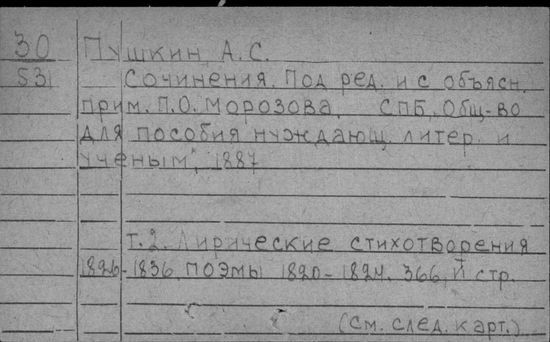 30 Пушкин, А.С.
531 Сочинения. Под ред. и с объясн.
прим. П.О. Морозова. СПБ, Общ-во
для пособия нуждающ. литер. и
ученым, 1887
Т.2. Лирические стихотворения
1826-1836. поэмы 1820-1824. 366, II стр.
(См. след. карт.)